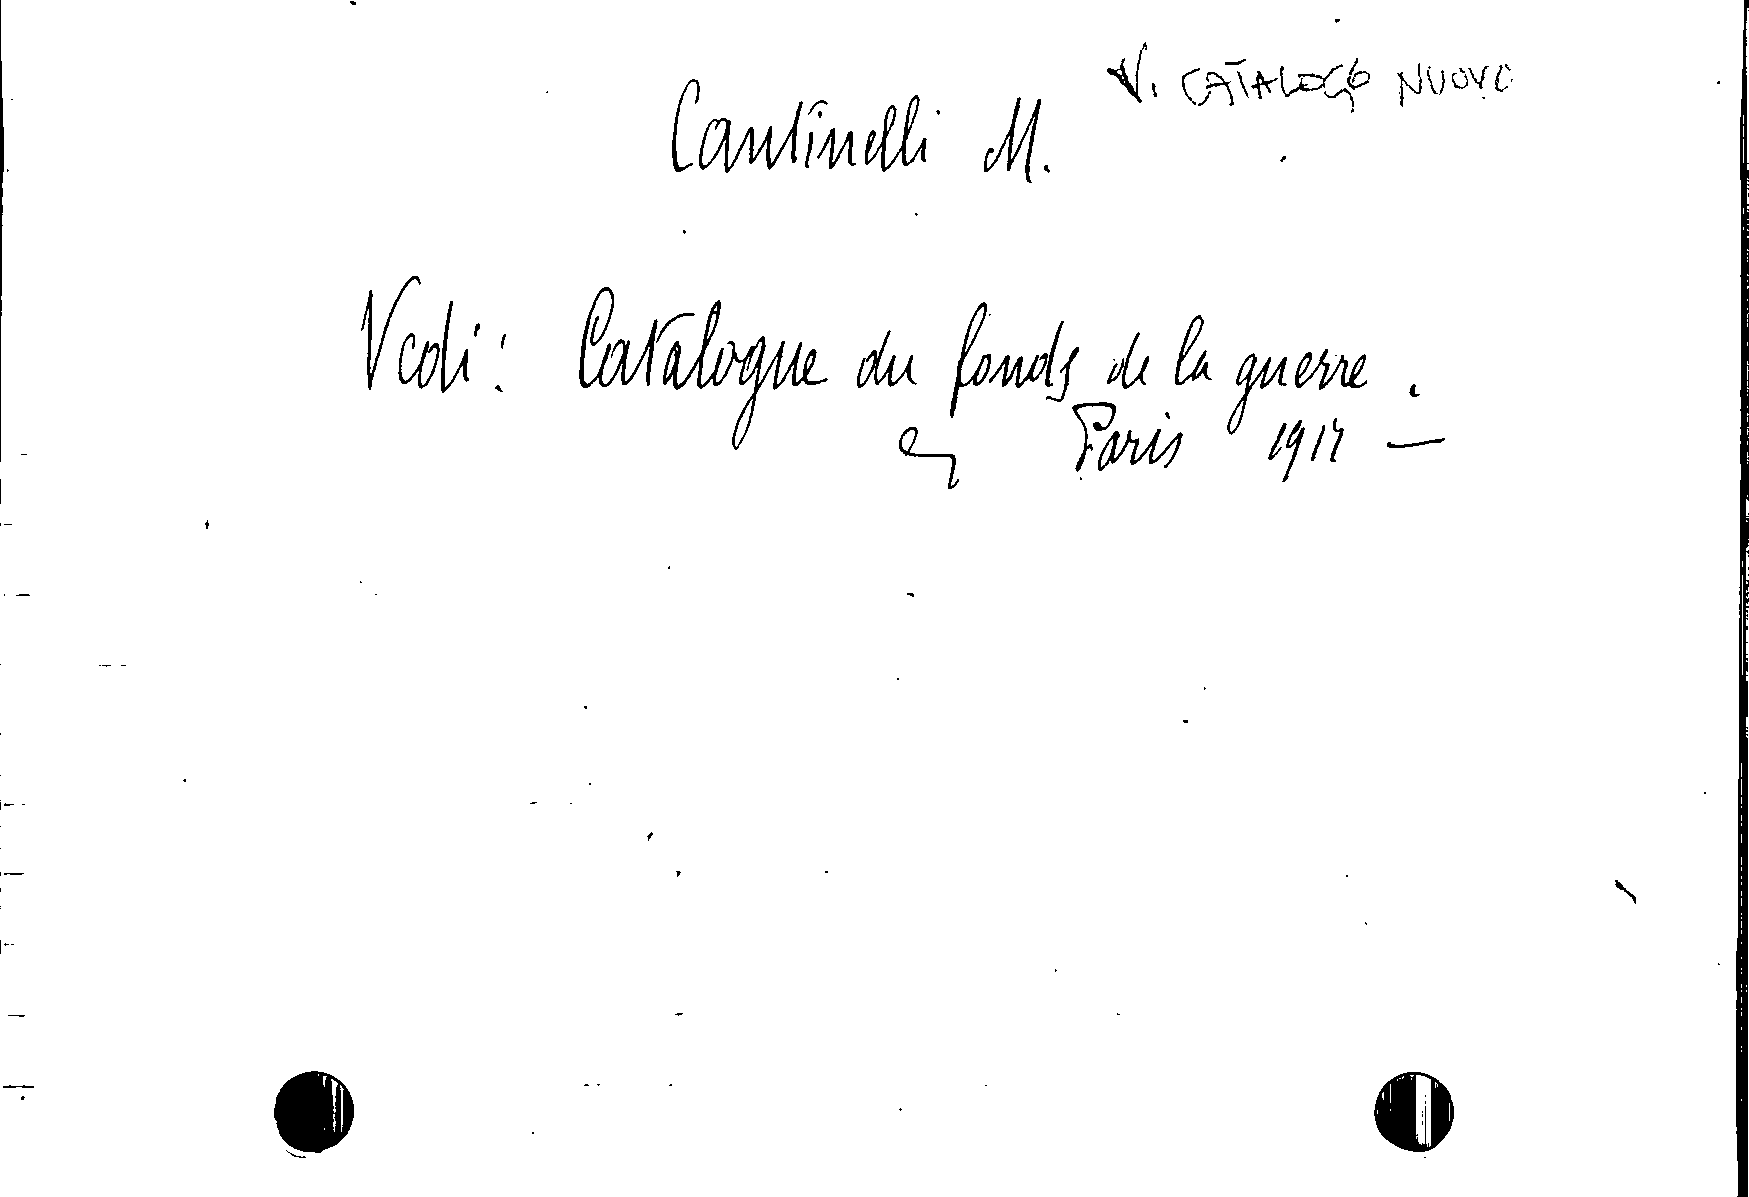 V. CATALOGO NUOVO
Cantinelli M.
Vedi: Catalogue du fonds de la guerre.
Paris 1917 —